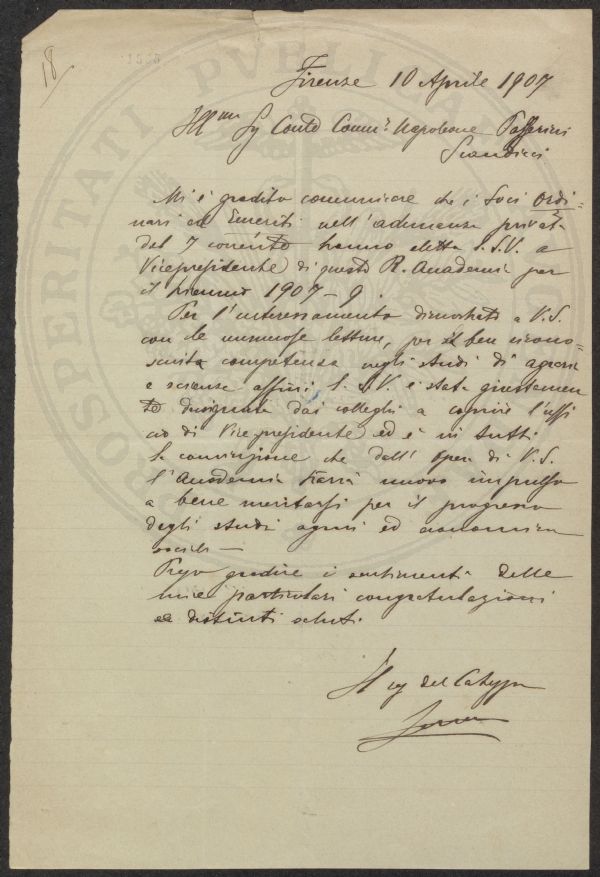 18
PROSPERITATI PVBLICAE
Firenze 10 Aprile 1907
Ill.mo Sg Conte Comm.r Napoleone Passerini
Scandicci
Mi è gradito comunicare che i Soci Ordi-
nari ed Emeriti nell'adunanza privata
del 7 corrente hanno eletta S.S.V. a
Vicepresidente di questa R. Accademia per
il triennio 1907-9.
Per l'interessamento dimostrato a V.S.
con le numerose letture, per il ben ricono-
sciuta competenza negli studi di agraria
e scienze affini S.S.V. è stata giustamen
te designata dai colleghi a coprire l'uffi
cio di Vice presidente ed è in tutti
la convinzione che dall'opera di V.S.
l'Accademia trarrà nuovo impulso
a bene meritarsi per il progresso
degli studi agrari ed economico
sociali —
Prego gradire i sentimenti delle
mie particolari congratulazioni
e distinti saluti.
Il
del